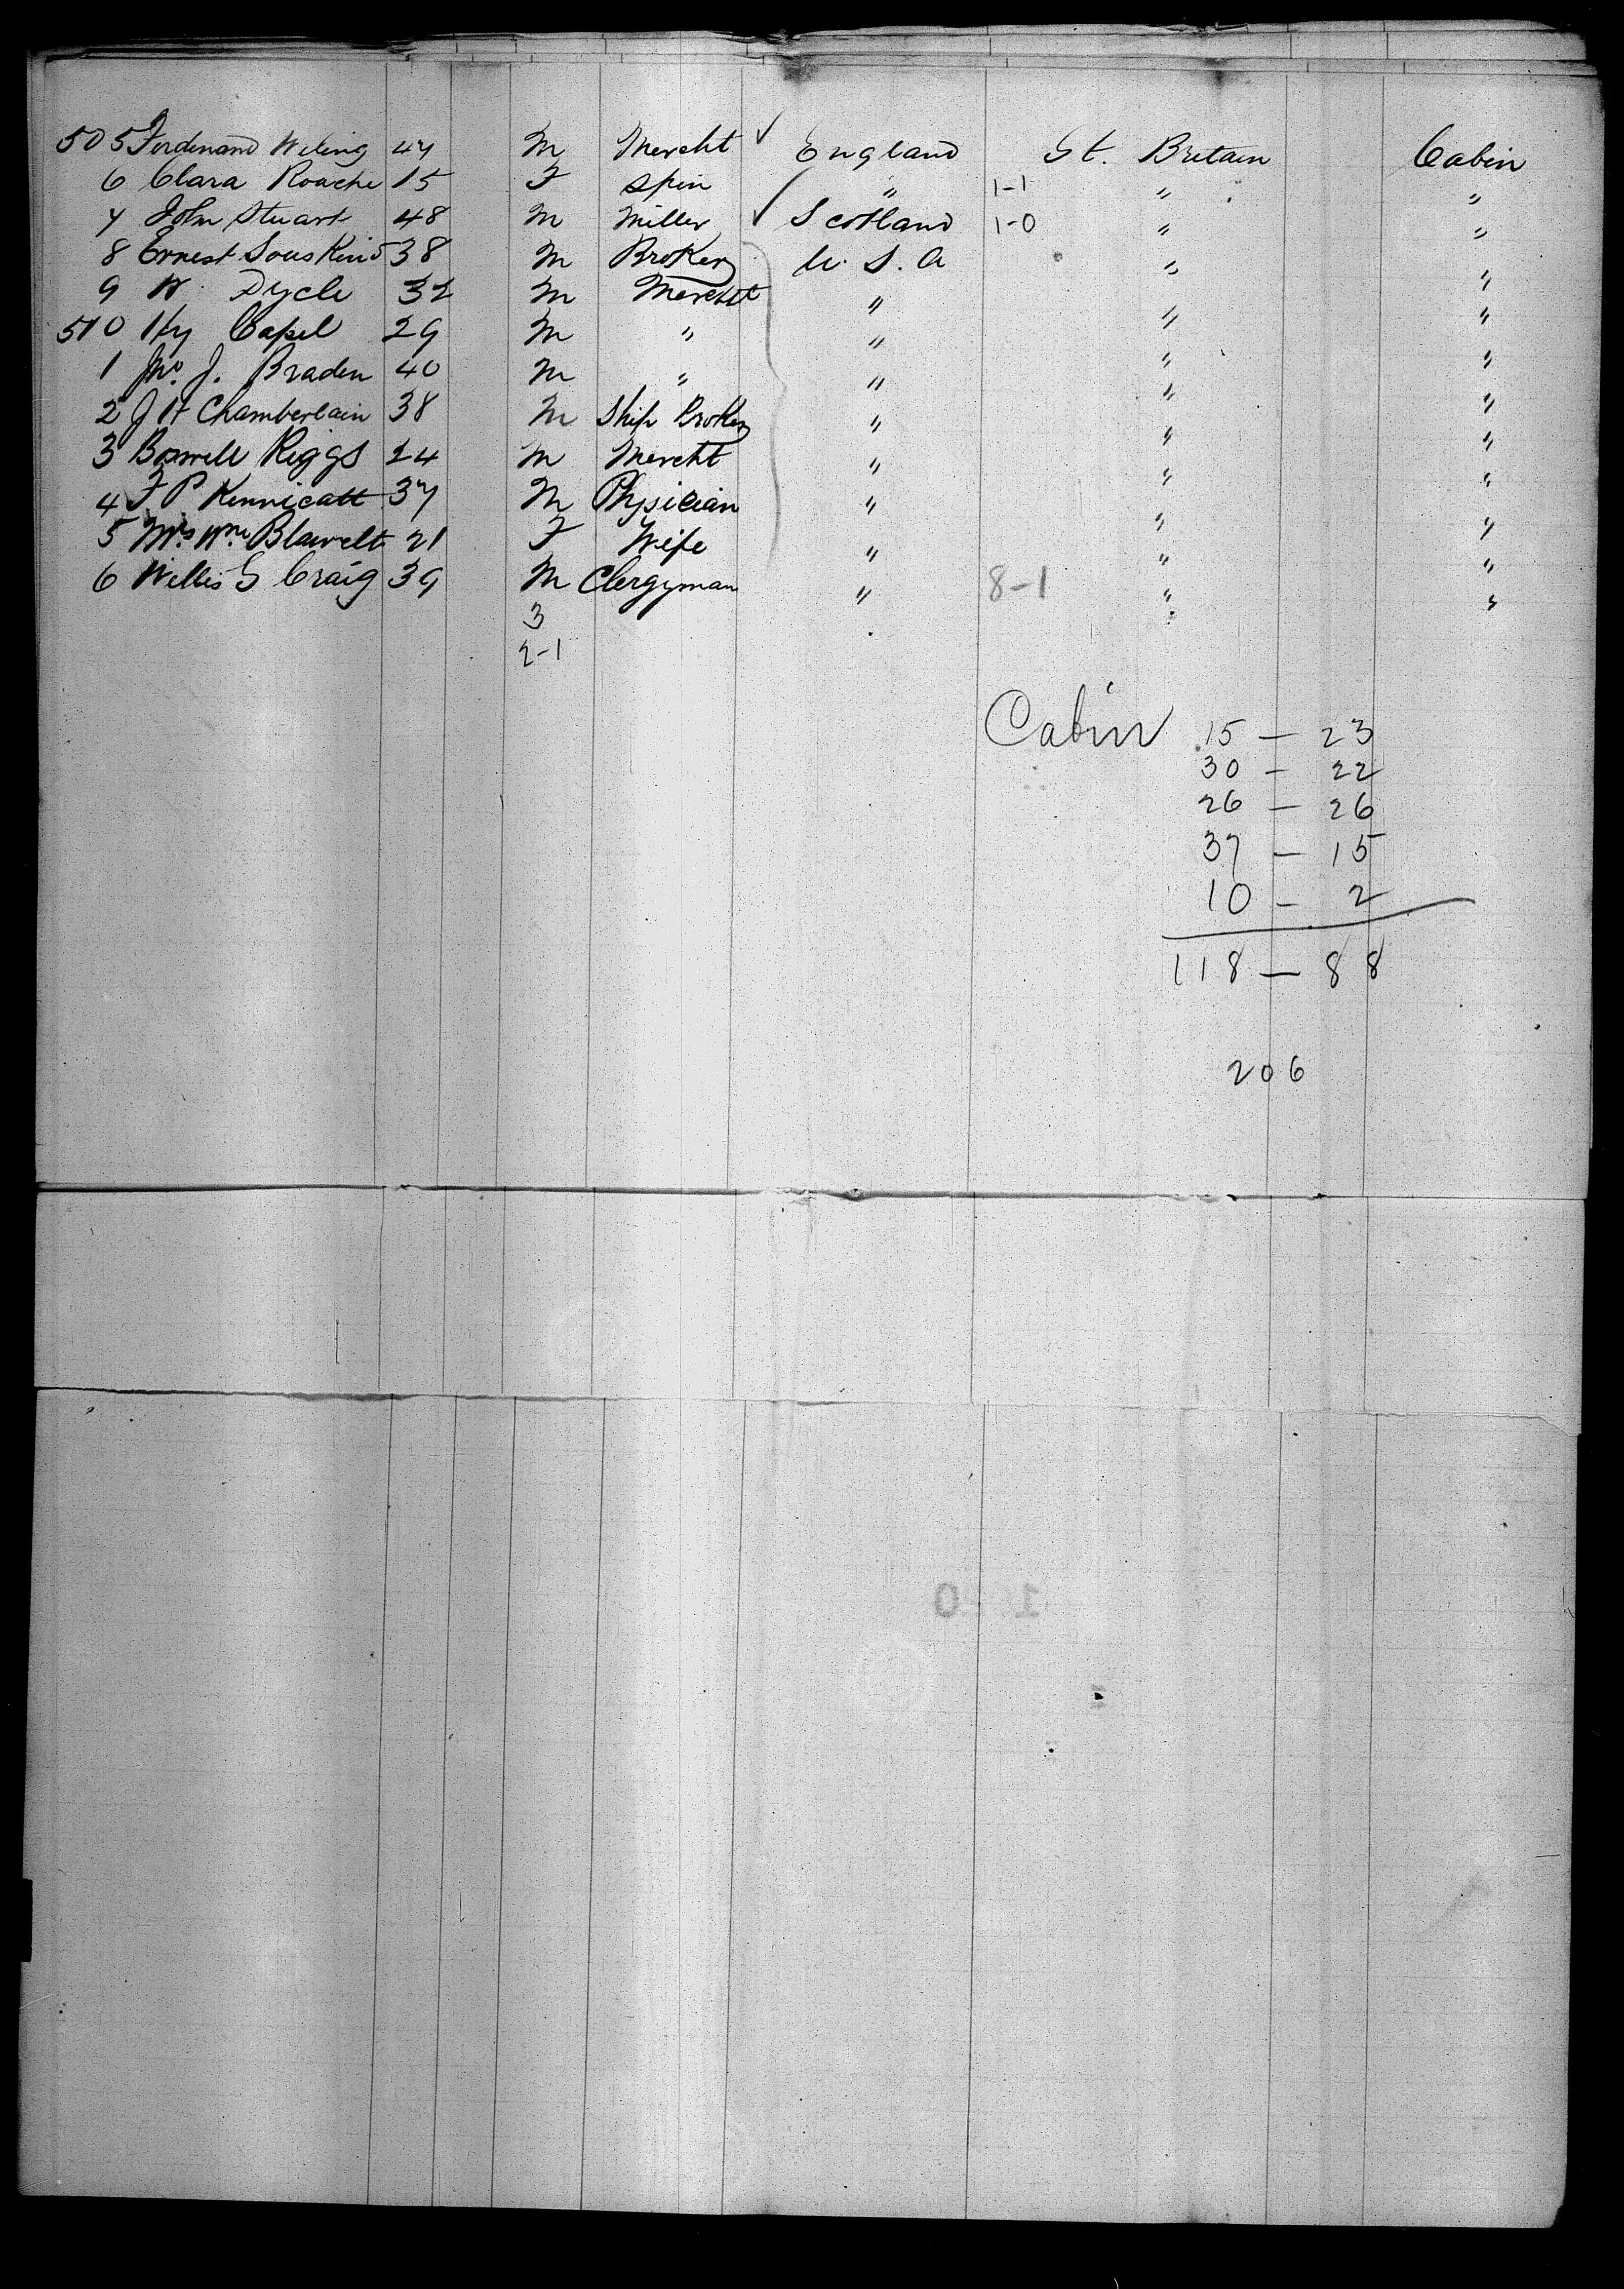 505 Ferdinand Weling 47 M Mercht ✓ England Gt. Britain Cabin
6 Clara Roache 15 F Spin " 1-1 " "
7 John Stuart 48 M Miller ✓ Scotland 1-0 " "
8 Ernest Souskind 38 M Broker U. S. A " "
9 W. Dycle 32 M Mercht " " "
510 Hy Capel 29 M " " " "
1 Jno. J. Braden 40 M " " " "
2 J H Chamberlain 38 M Ship Broker " " "
3 Boswell Riggs 24 M Mercht " " "
4 F P Kennicatt 37 M Physician " " "
5 Mrs Wm. Blawelt 21 F Wife " " "
6 Willis G Craig 39 M Clergyman " 8-1 " "
3
2-1
Cabin 15 — 23
30 — 22
26 — 26
37 — 15
10 — 2
118 — 88
206